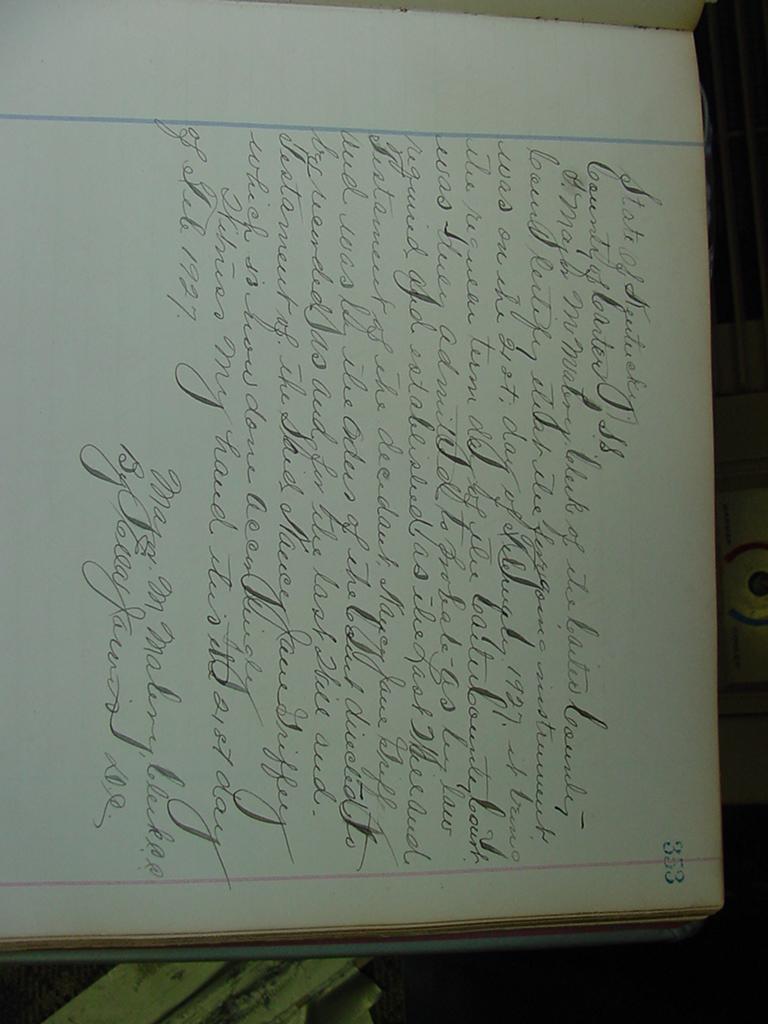 353
State of Kentucky
County of Carter } SS
I Major M Mabry Clerk of the Carter County
Court Certify that the forgoing instrument
was on the 21st. day of 1927. it being
the reguler term day of the Carter County Court
was duly admitted to Probate as by law
required and established as the last Will and
Testament of the decedant Nancy Jane Griff
and was by the order of the Court directed to
be recorded as and for the last Will and
Testament of the Said Nancy Jane Griffey
which is now done accordingly
Witness My hand this the 21st day
of Feb 1927.
Major M Mabry, Clerk
By D.C.